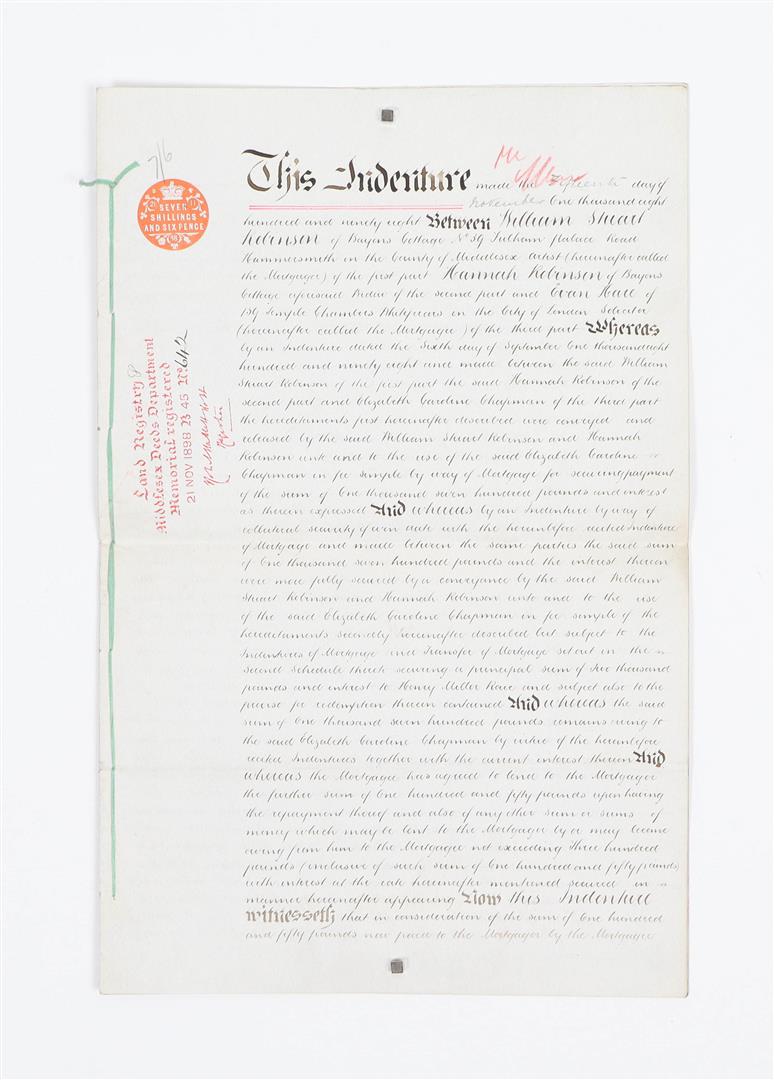 7/6
SEVEN
SHILLINGS
AND SIX PENCE
Land Registry
Middlesex Deeds Department
Memorial registered
21 NOV 1898 B 45 No 642
This Indenture made the Fifteenth day of
November One thousand eight
hundred and ninety eight Between William Stuart
Robinson of Bayons Cottage No 59 Fulham Palace Road
Hammersmith in the County of Middlesex Artist (hereinafter called
the Mortgagor) of the first part Hannah Robinson of Bayons
Cottage aforesaid Widow of the second part and Evan Hare of
Temple Chambers Whitefriars in the City of London Solicitor
(hereinafter called the Mortgagee) of the third part Whereas
by an Indenture dated the Sixth day of September One thousand eight
hundred and ninety eight and made between the said William
Stuart Robinson of the first part the said Hannah Robinson of the
second part and Elizabeth Caroline Chapman of the third part
the hereditaments first hereinafter described were conveyed and
released by the said William Stuart Robinson and Hannah
Robinson unto and to the use of the said Elizabeth Caroline
Chapman in fee simple by way of Mortgage for securing payment
of the sum of One thousand seven hundred pounds and interest
as therein expressed And whereas by an Indenture by way of
collateral security of even date with the hereinbefore recited Indenture
of Mortgage and made between the same parties the said sum
of One thousand seven hundred pounds and the interest thereon
were more fully secured by a conveyance by the said William
Stuart Robinson and Hannah Robinson unto and to the use
of the said Elizabeth Caroline Chapman in fee simple of the
hereditaments secondly hereinafter described but subject to the
Indentures of Mortgage and Transfer of Mortgage set out in the
second schedule thereto securing a principal sum of Two thousand
pounds and interest to Henry Miller and subject also to the
proviso for redemption therein contained And whereas the said
sum of One thousand seven hundred pounds remains owing to
the said Elizabeth Caroline Chapman by virtue of the hereinbefore
recited Indentures together with the current interest thereon And
whereas the Mortgagee has agreed to lend to the Mortgagor
the further sum of One hundred and fifty pounds upon having
the repayment thereof and also of any other sum or sums of
money which may be lent to the Mortgagor by or may become
owing from him to the Mortgagee not exceeding Three hundred
pounds (inclusive of such sum of One hundred and fifty pounds)
with interest at the rate hereinafter mentioned secured in
manner hereinafter appearing Now this Indenture
witnesseth that in consideration of the sum of One hundred
and fifty pounds now paid to the Mortgagor by the Mortgagee